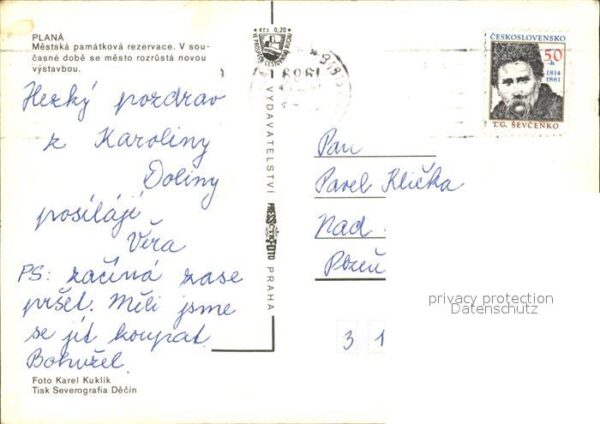 PLANÁ
Městská památková rezervace. V sou-
časné době se město rozrůstá novou
výstavbou.
Hezký pozdrav
z Karoliny
Doliny
posílají
Věra
PS: začíná zase
pršet. Měli jsme
se jít koupat.
Bohužel.
Foto Karel Kuklík
Tisk Severografia Děčín
Kčs 0,20
VYDAVATELSTVÍ
PRESSFOTO
PRAHA
1989
ČESKOSLOVENSKO
50
1814
1861
T. G. ŠEVČENKO
Pan
Pavel Klička
Nad
Plzeň
3 1
privacy protection
Datenschutz